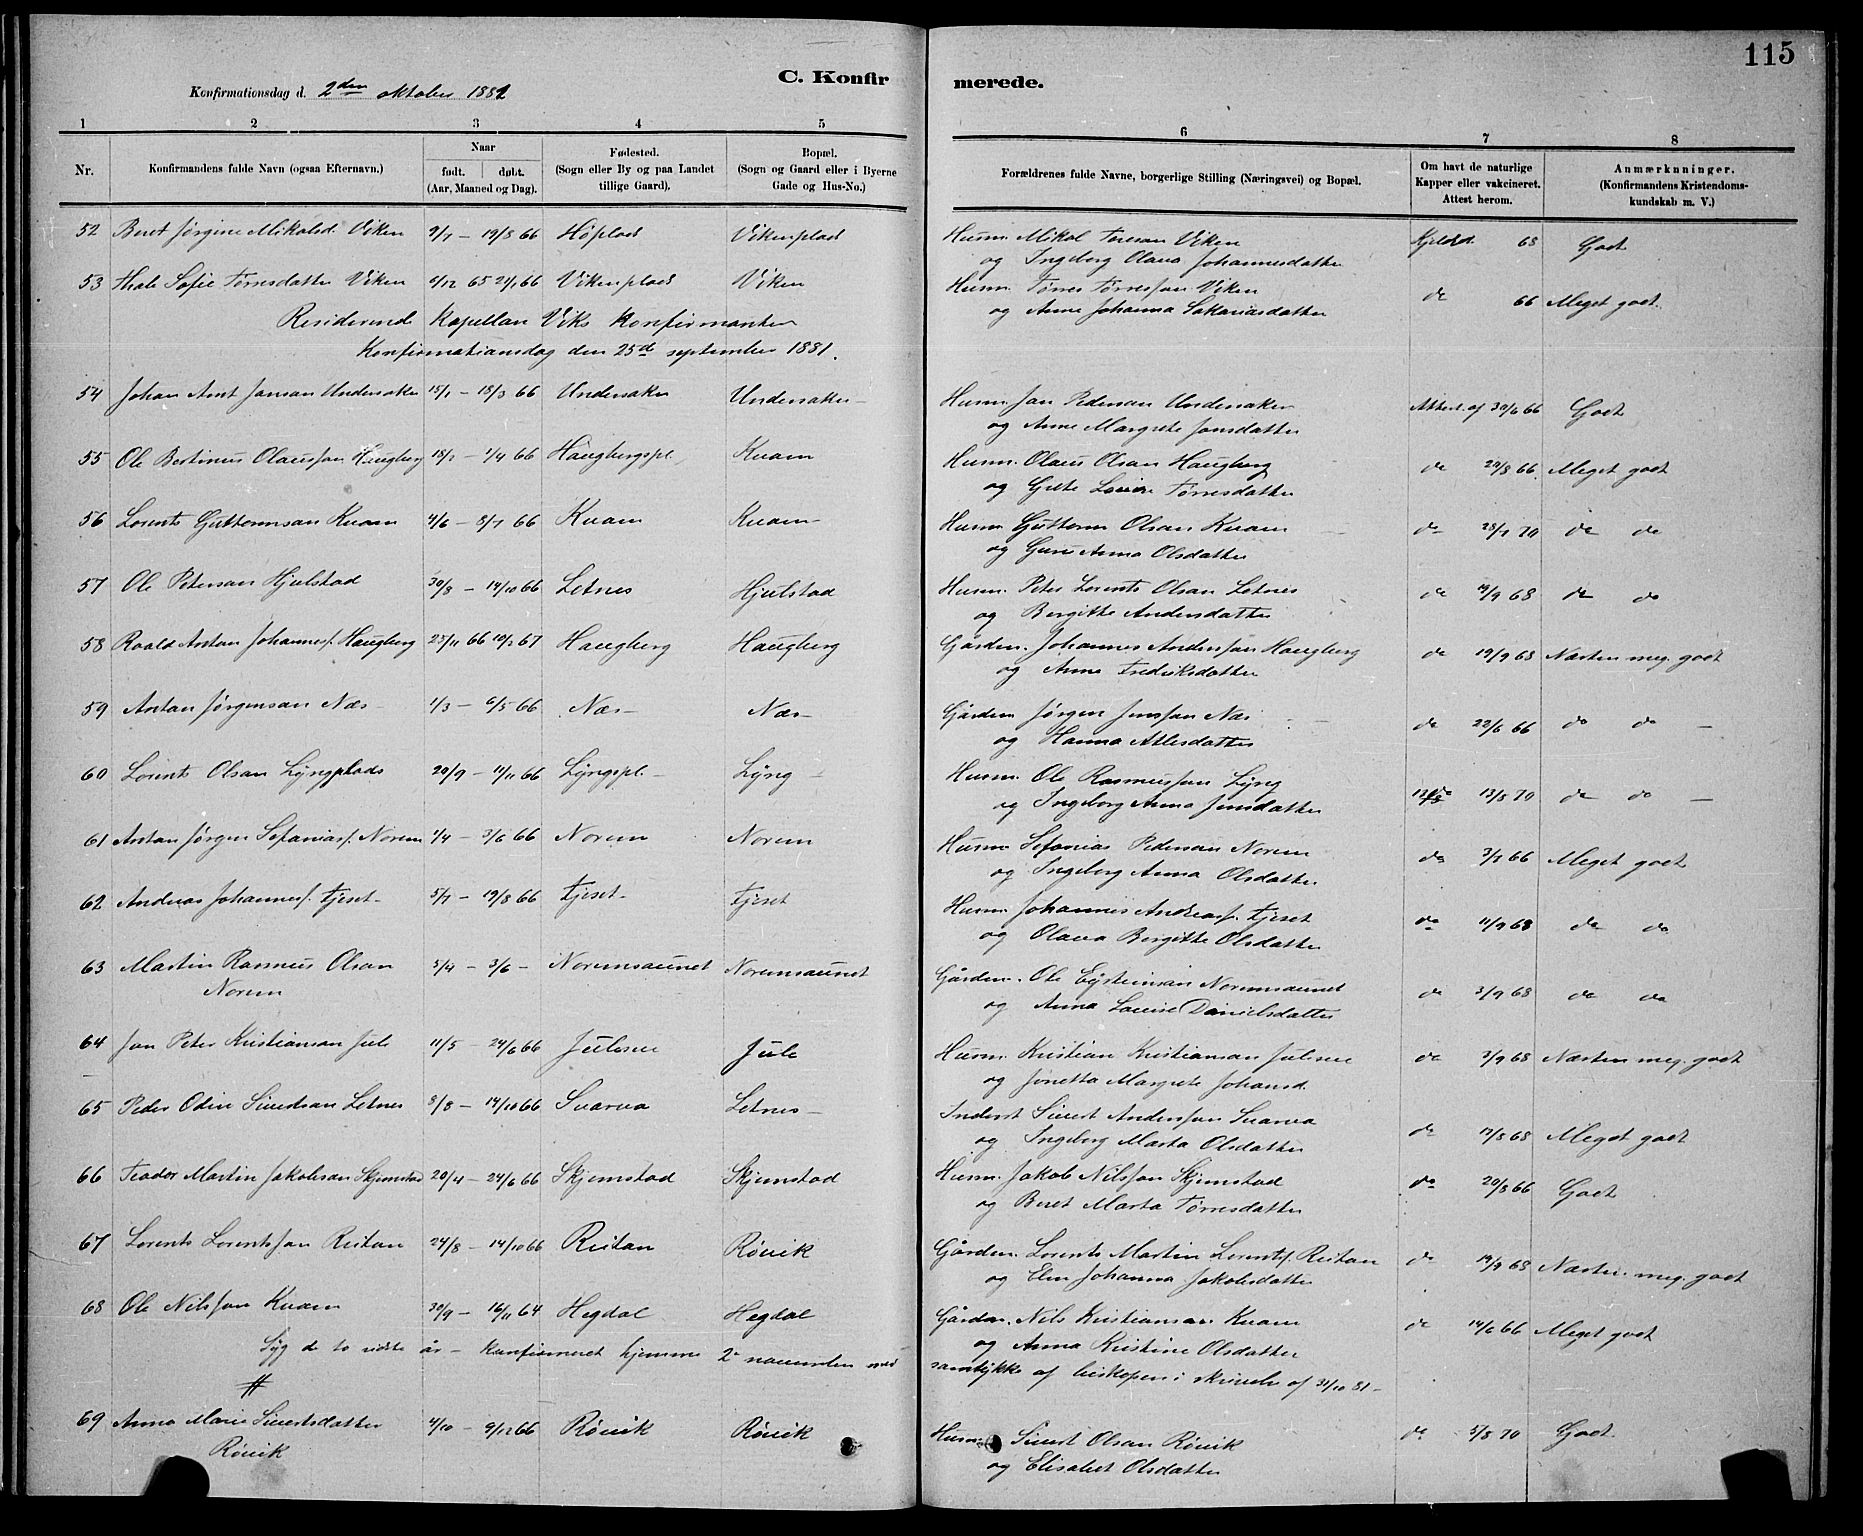 115
C. Konfir merede.
Konfirmationsdag d. 2den oktober 1881
1 2 3 4 5 6 7 8
Nr. Konfirmandens fulde Navn (ogsaa Efternavn.) Naar født. døbt. (Aar, Maaned og Dag). Fødested. (Sogn eller By og paa Landet tillige Gaard). Bopæl. (Sogn og Gaard eller i Byerne Gade og Hus-No.) Forældrenes fulde Navne, borgerlige Stilling (Næringsvei) og Bopæl. Om havt de naturlige Kapper eller vakcineret. Attest herom. Anmærkninger. (Konfirmandens Kristendomskundskab m. V.)
52 Beret Jørgine Mikalsd. Viken 9/7 — 19/8 66 Høplad Vikenplads Husm. Mikal Toresan Viken 68 Godt
og Ingeborg Olava Johannesdatter
53 Thale Sofie Tørresdatter Viken 6/12 65 21/1 66 Vikenplads Viken Husm. Tørres Tørresson Viken do 66 Meget godt
og Anne Johanna Sakariasdatter
Residerend Kapellan Viks konfirmanter
Konfirmationsdag den 25de september 1881.
54 Johan Arnt Jansan Undersaker 15/1 — 18/3 66 Undersaker Undersaker — Husm. Jan Pedersan Undersaker Attest af 30/6 66 Godt
og Anne Margrete Jonsdatter
55 Ole Bertinus Olausson Haugberg 18/2 — 1/4 66 Haugbergspl. Kvam Husm. Olaus Olsan Haugberg do 20/8 66 Meget godt
og Tørresdatter
56 Lorents Guttormsan Kvam 4/6 — 8/7 66 Kvam Kvam — Husm Guttorm Olsan Kvam do 28/7 70 do do
og Guru Anna Olsdatter
57 Ole Petersan Hjulstad 30/8 — 14/10 66 Letnes Hjulstad Husm. Peter Lorents Olsan Letnes do 19/9 68 do do
og Bergitte Andersdatter
58 Roald Antan Johannesf. Haugberg 25/11 66 10/2 67 Haugberg Haugberg Gårdm. Johannes Andersson Haugberg do 19/9 68 Næsten meg. godt
og Anne Fredriksdatter
59 Antan Jørgensan Næs — 1/3 — 6/5 66 Næs — Næs — Gårdm Jørgen Jensson Næs do 22/6 66 do do —
og Hanna Atlesdatter
60 Lorents Olsan Lyngplads 20/9 — 11/11 66 Lyngspl. — Lyng — Husm. Ole Rasmusson Lyng do 13/8 70 do do —
og Ingeborg Anna Jensdatter
61 Antan Jørgen Sefaniasf. Norem 1/4 — 3/6 66 Norem Norem Husm Sefanias Pedersan Norem do 3/7 66 Meget godt
og Ingeborg Anna Olsdatter
62 Andreas Johannesf. Tjeset 5/7 — 19/8 66 Tjeset — Tjeset Husm. Johannes Andreasf. Tjeset do 11/9 68 do do
og Olava Bergitte Olsdatter
63 Martin Rasmus Olsan 5/4 — 3/6 — Noremsaunet Noremsaunet Gårdm. Ole Eysteinsan Noremsaunet do 3/9 68 do do
Norem og Anna Louise Danielsdatter
64 Jon Peter Kristiansan Jule 11/5 — 24/6 66 Julesve Jule Husm. Kristian Kristiansan Julesve do 3/9 68 Næsten meg. godt
og Jonetta Margrete Johansd.
65 Peder Odin Sivertsan Letnes 8/8 — 14/10 66 Svarva Letnes — Inderst Sivert Andersson Svarva do 12/8 68 Meget godt
og Ingeborg Marta Olsdatter
66 Teodor Martin Jakobsan Skjemstad 20/4 — 24/6 66 Skjemstad Skjemstad Husm. Jakob Nilsson Skjemstad do 20/8 66 Godt
og Beret Marta Tørresdatter
67 Lorents Lorentsson Reitan 24/8 — 14/10 66 Reitan Røvik Gårdm. Lorents Martin Lorentsf. Reitan do 19/9 68 Næsten meg. godt
og Elen Johanna Jakobsdatter
68 Ole Nilsson Kvam 30/9 — 16/11 64 Hegdal Hegdal Gårdm. Nils Kristiansan Kvam do 14/6 66 Meget godt
og Anna Kristine Olsdatter
Syg de to sidste år — konfirmeret hjemme 2 november med samtykke af biskopen i skrivelse af 31/10 81 —
#
69 Anna Marie Sivertsdatter 4/10 — 9/12 66 Røvik Røvik Husm. Sivert Olsan Røvik do 5/8 70 Godt
Røvik og Elisabet Olsdatter